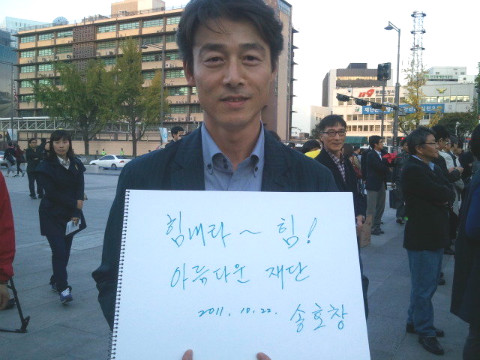 힘내라 ~ 힘!
아름다운 재단
2011. 10. 22. 송호창
119